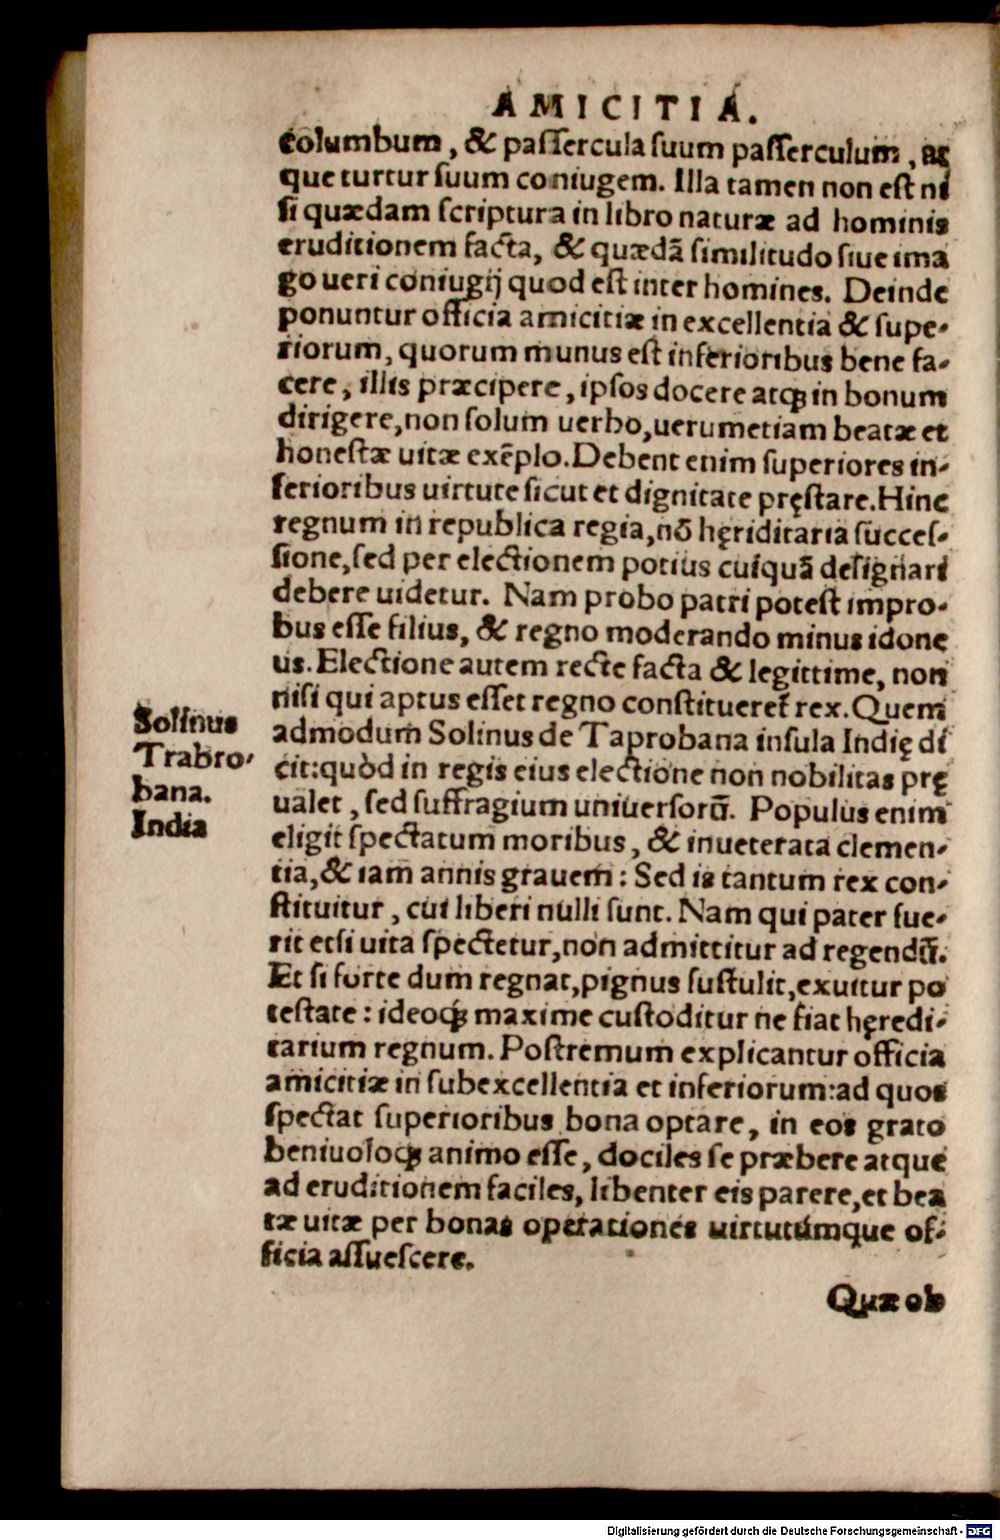 AMICITIA.
columbum, & paſſercula ſuum paſſerculum, at
que turtur ſuum coniugem. Illa tamen non eſt ni
ſi quædam ſcriptura in libro naturæ ad hominis
eruditionem facta, & quædā ſimilitudo ſiue ima
go ueri coniugij quod eſt inter homines. Deinde
ponuntur officia amicitiæ in excellentia & ſupe-
riorum, quorum munus eſt inferioribus bene fa-
cere, illis præcipere, ipſos docere atqꝫ in bonum
dirigere, non ſolum uerbo, uerumetiam beatæ et
honeſtæ uitæ exẽplo. Debent enim ſuperiores in-
ferioribus uirtute ſicut et dignitate pręſtare. Hinc
regnum in republica regia, nō hęriditaria succeſ-
ſione, ſed per electionem potius cuiquā deſignari
debere uidetur. Nam probo patri poteſt impro-
bus eſſe filius, & regno moderando minus idone
us. Electione autem recte facta & legittime, non
niſi qui aptus eſſet regno conſtitueret̃ rex. Quem
admodum Solinus de Taprobana inſula Indię di
cit: quòd in regis eius electione non nobilitas prę
ualet, ſed ſuffragium uniuerſorū. Populus enim
eligit ſpectatum moribus, & inueterata clemen-
tia, & iam annis grauem: Sed is tantum rex con-
ſtituitur, cui liberi nulli ſunt. Nam qui pater fue-
rit etſi uita ſpectetur, non admittitur ad regendū.
Et ſi forte dum regnat, pignus ſuſtulit, exuitur po
teſtate: ideoqꝫ maxime cuſtoditur ne fiat hęredi-
tarium regnum. Poſtremum explicantur officia
amicitiæ in ſubexcellentia et inferiorum: ad quos
ſpectat ſuperioribus bona optare, in eos grato
beniuoloqꝫ animo eſſe, dociles ſe præbere atque
ad eruditionem faciles, libenter eis parere, et bea
tæ uitæ per bonas operationes uirtutúmque of-
ficia aſſueſcere.
Quæ ob
Solinus
Trabro-
bana.
India
Digitalisierung gefördert durch die Deutsche Forschungsgemeinschaft - DFG